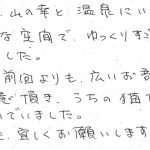 山の幸と温泉にい
な空間で、ゆっくりすご
した。
前回よりも、広いお
頂き、うちの猫
いでいました。
宜しくお願いします